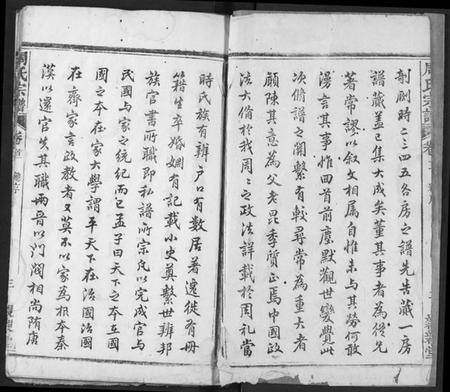 周氏宗譜 卷首
剞劂時二三四五各房之譜先告蕆一房
譜蕆蓋已集大成矣董其事者為從兄
著常謬以叙文相屬自惟未與其勞何敢
漫言其事惟回首前塵默觀世變覺此
次脩譜之關繫有較尋常為重大者
願陳其意為父老昆季質正焉中國政
法大備於我周之政法詳載於周禮當
時氏族有辨戶口有數居著遷徙有冊
籍生卒婚姻有記載小史奠繫世辨邦
族官書所職即私譜所宗民以完成官與
民國與家之統紀而已孟子曰天下之本在國
國之本在家大學謂平天下在治國治國
在齊家言政教者又莫不以家為根本秦
漢以還官失其職兩晉以門閥相尚隋唐
周氏宗譜 卷首 三